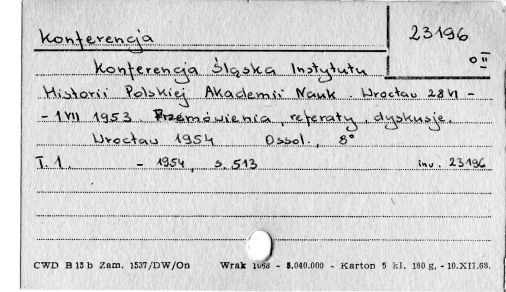 Konferencja
23196
O II
Konferencja Śląska Instytutu
Historii Polskiej Akademii Nauk. Wrocław 28 VI -
- 1 VII 1953. Przemówienia, referaty, dyskusje.
Wrocław 1954 Ossol., 8°
T. 1. - 1954, s. 513 inw. 23196
CWD B 15 b Zam. 1537/DW/On Wrak - 5.040.000 - Karton 5 kl. 180 g, - 10.XII.68.